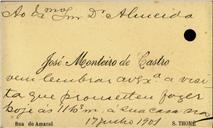 Ao Exmo Snr Dr Almeida
José Monteiro de Castro
vem lembrar a V. Exª a visi
ta que prometteu fazer
hoje ás 11 h m. á sua casa
17 junho 1901
Rua do Amaral
S. THOMÉ